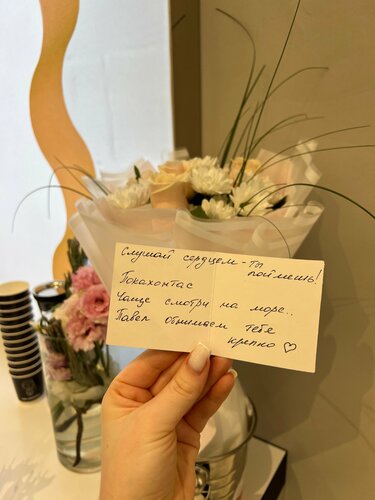 Слушай сердцем - ты
поймешь!
Покахонтас
Чаще смотри на море..
Павел обнимаем тебя
крепко